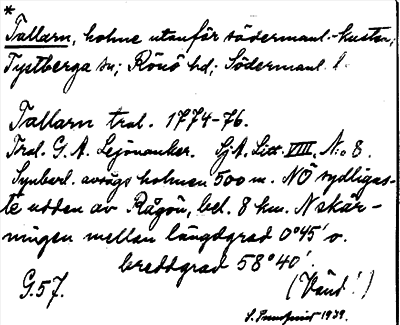 *
Tallarn, holme utanför södermanl.-kusten;
Tystberga sn; Rönö hd; Södermanl. l.
Tallarn tral. 1774-76.
Trol. G. A. Lejonanker. SjA. Litt. VIII. N:o 8.
Synberl. avsågs holmen 500 m. NÖ sydligas-
te udden av Rågön, bel. 8 km. N skär-
ningen mellan längdgrad 0°45' o.
breddgrad 58°40'.
G.57.
(Vänd!)
1939.